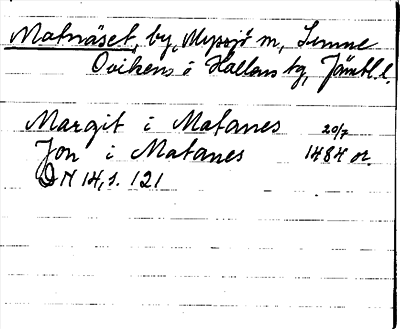 Matnäset, by, Myssjö sn, Sunne
Ovikens o Hallens tg, Jämtl.l.
Margit i Matanes 20/7
Jon i Matanes 1484 or.
DN 14, s. 121